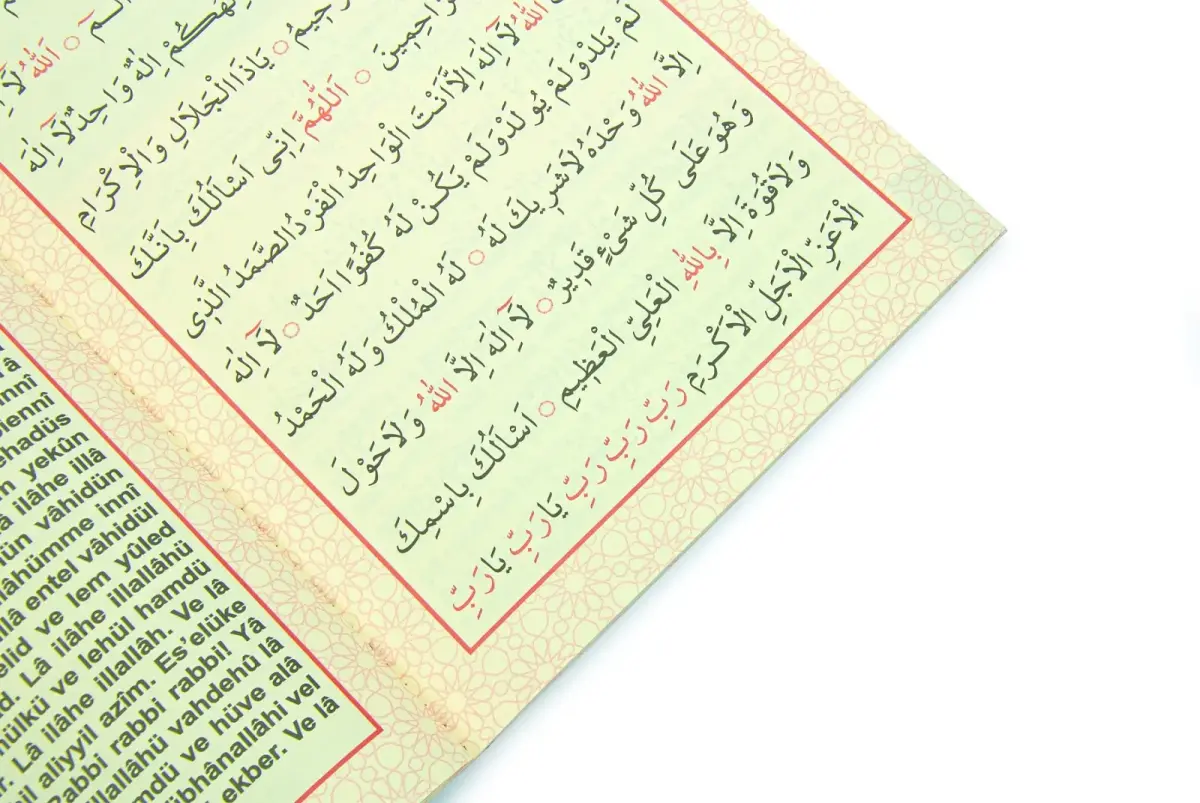 الٓمٓ ○ اَللّٰهُ لَٓا
اِلٰهٌ وَاحِدٌ لَٓا اِلٰهَ
○ يَاذَا الْجَلَالِ وَالْاِكْرَامِ
○ اَللّٰهُمَّ اِنِّى اَسْاَلُكَ بِاَنَّكَ
اللّٰهُ لَٓا اِلٰهَ اِلَّا اَنْتَ الْوَاحِدُ الْفَرْدُ الصَّمَدُ الَّذِى
لَمْ يَلِدْ وَلَمْ يُولَدْ وَلَمْ يَكُنْ لَهُ كُفُوًا اَحَدٌ ○ لَٓا اِلٰهَ
اِلَّا اللّٰهُ وَحْدَهُ لَا شَرِيكَ لَهُ ○ لَهُ الْمُلْكُ وَلَهُ الْحَمْدُ
وَهُوَ عَلَى كُلِّ شَىْءٍ قَدِيرٌ ○ لَٓا اِلٰهَ اِلَّا اللّٰهُ وَلَا حَوْلَ
وَلَا قُوَّةَ اِلَّا بِاللّٰهِ الْعَلِىِّ الْعَظِيمِ ○ اَسْاَلُكَ بِاسْمِكَ
الْاَعَزِّ الْاَجَلِّ الْاَكْرَمِ رَبِّ رَبِّ رَبِّ يَا رَبِّ يَا رَبِّ
yekûn
ilâhe illâ
vâhidün
innî
entel vâhidül
ve lem yûled
Lâ ilâhe illallâhü
ve lehül hamdü
Lâ ilâhe illallâh. Ve lâ
aliyyil azîm. Es'elüke
Rabbi rabbi rabbi! Yâ
vahdehû lâ
ve hüve alâ
vel
ekber. Ve lâ